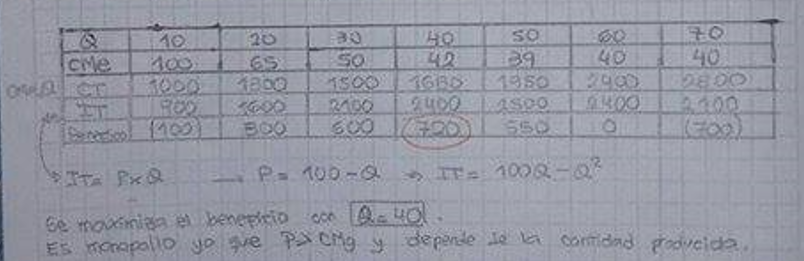 Q 10 20 30 40 50 60 70
CMe 100 65 50 42 39 40 40
CT 1000 1300 1500 1680 1950 2400 2800
IT 900 1600 2100 2400 2500 2400 2100
Beneficio (100) 300 600 720 550 0 (700)
IT = P x Q → P = 100 - Q → IT = 100Q - Q²
Se maximiza el beneficio con Q = 40.
Es monopolio ya que P > CMg y depende de la cantidad producida.